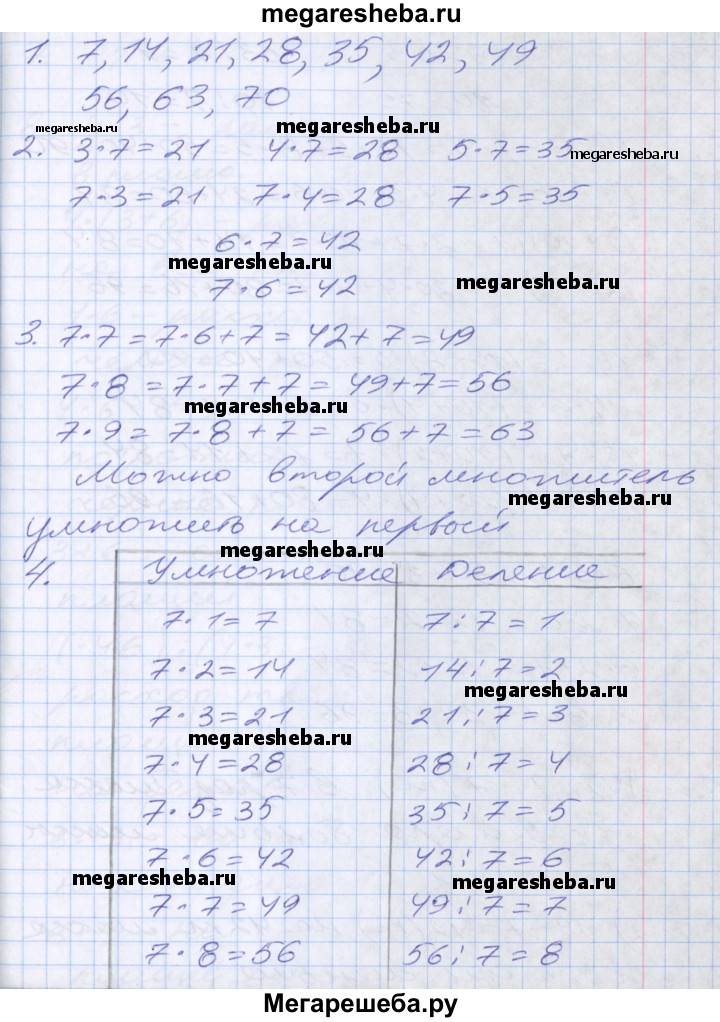 megaresheba.ru
1. 7, 14, 21, 28, 35, 42, 49
56, 63, 70
megaresheba.ru megaresheba.ru
2. 3·7=21 4·7=28 5·7=35 megaresheba.ru
7·3=21 7·4=28 7·5=35
6·7=42
megaresheba.ru megaresheba.ru
7·6=42
3. 7·7=7·6+7=42+7=49
7·8=7·7+7=49+7=56
megaresheba.ru
7·9=7·8+7=56+7=63
Можно второй множитель
megaresheba.ru
умножить на первый
megaresheba.ru
4. Умножение Деление
7·1=7 7:7=1
7·2=14 14:7=2
megaresheba.ru
7·3=21 21:7=3
megaresheba.ru
7·4=28 28:7=4
7·5=35 35:7=5
7·6=42 42:7=6
megaresheba.ru megaresheba.ru
7·7=49 49:7=7
7·8=56 56:7=8
Мегарешеба.ру